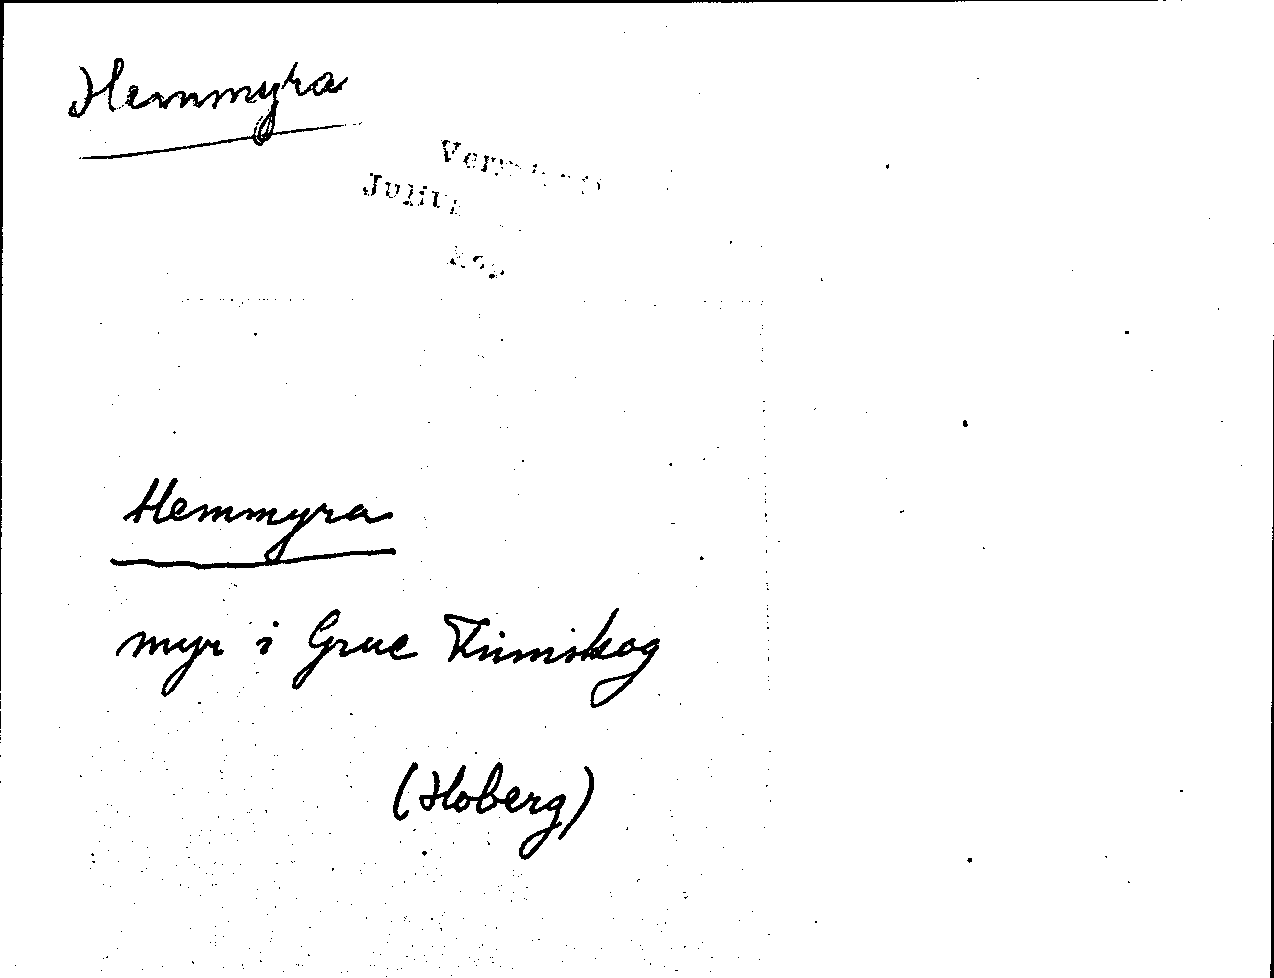 Hemmyra
Julius
Hemmyra
myr i Grue Finnskog
(Hoberg)